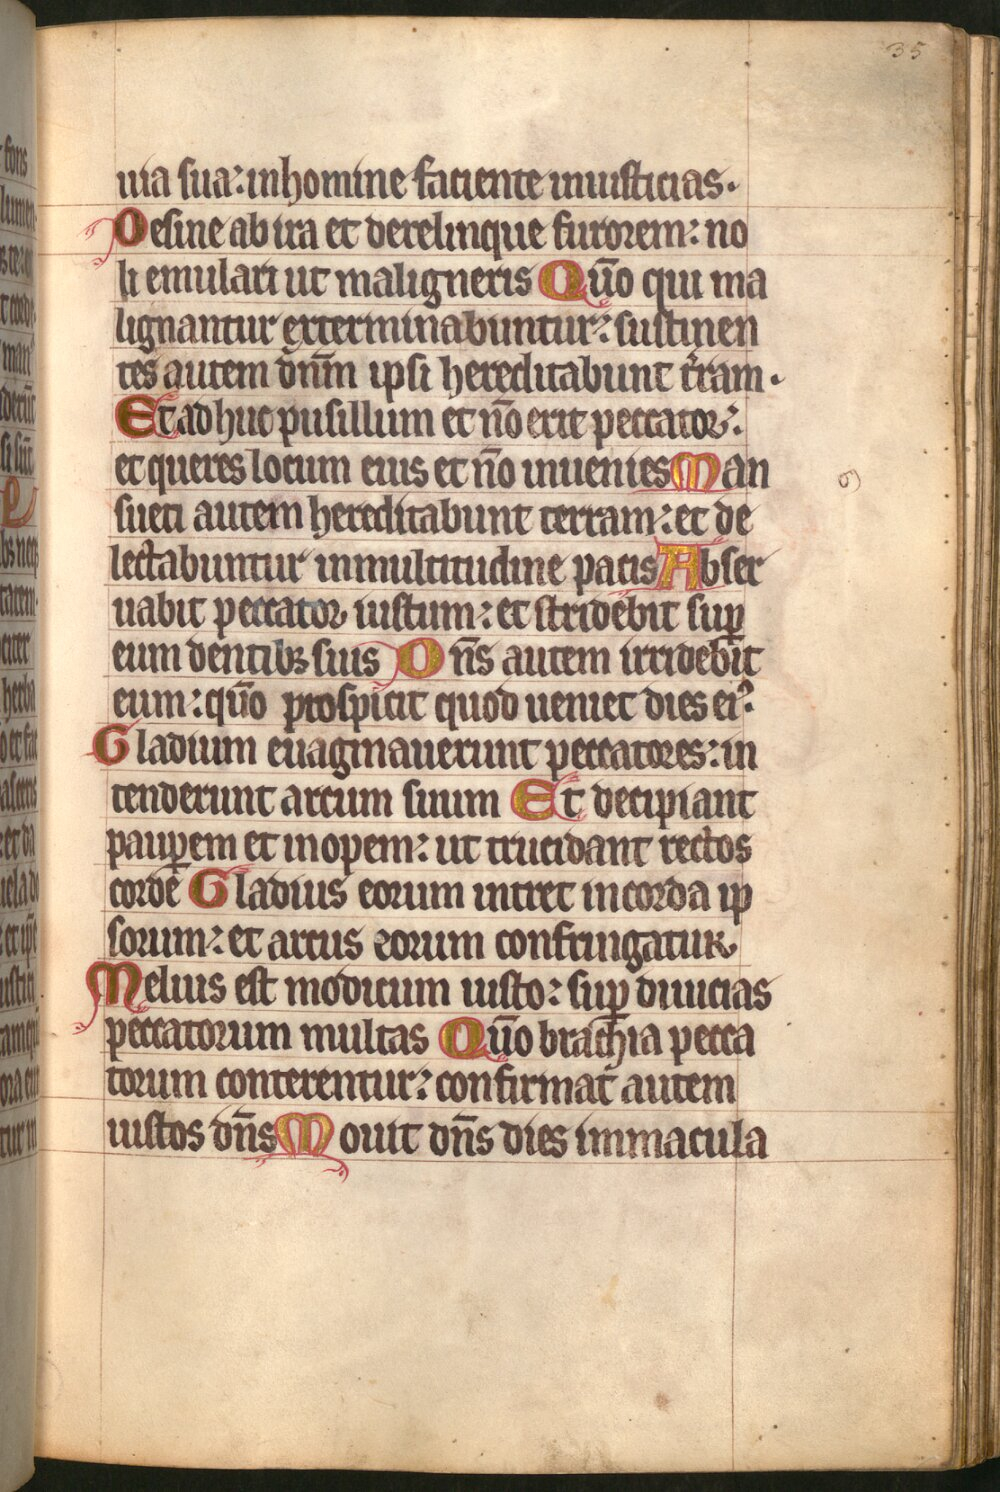 35
uia sua: inhomine faciente iniusticias.
Desine ab ira et derelinque furorem: no
li emulari ut maligneris Qūo qui ma
lignantur exterminabuntur: sustinen
tes autem dn̄m ipsi hereditabunt t̄ram.
Et adhuc pusillum et n̄o erit peccator:
et queres locum eius et n̄o inuenies Man
sueti autem hereditabunt terram: et de
lectabuntur inmultitudine pacis Abser
uabit peccator iustum: et stridebit sup̱
eum dentibꝫ suis Dn̄s autem irridebit
eum: qūo prospicit quod ueniet dies ei᷒
Gladium euaginauerunt peccatores: in
tenderunt arcum suum Et decipiant
paup̱em et inopem: ut trucidant rectos
corde Gladius eorum intret incorda ip
sorum: et arcus eorum confringatur
Melius est modicum iusto: sup̱ diuicias
peccatorum multas Qūo brachia pecca
torum conterentur: confirmat autem
iustos dn̄s Nouit dn̄s dies immacula